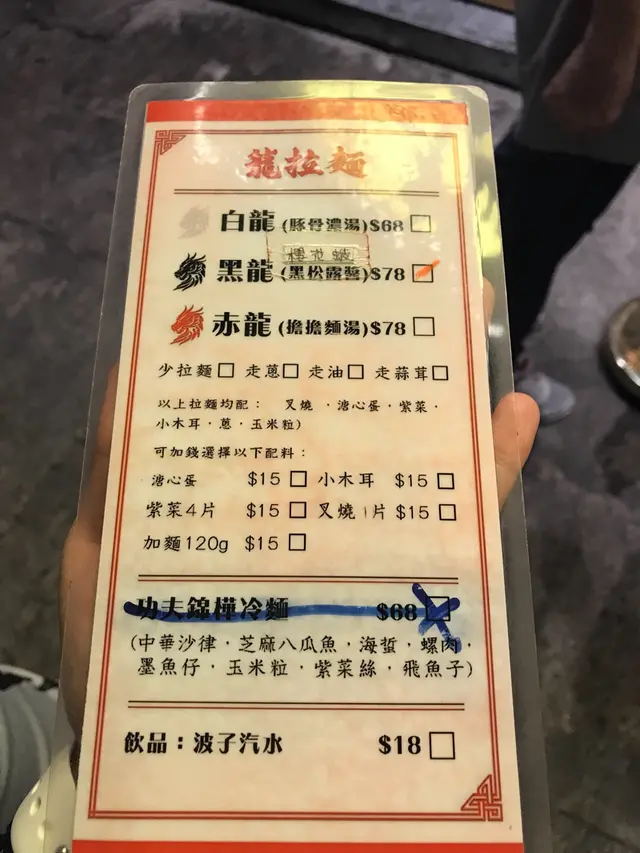 龍拉麵
白龍 (豚骨濃湯) $68
黑龍 (黑松露醬) $78
赤龍 (擔擔麵湯) $78
少拉麵 走蔥 走油 走蒜茸
以上拉麵均配： 叉燒 ，溏心蛋，紫菜，
小木耳，蔥，玉米粒)
可加錢選擇以下配料：
溏心蛋 $15 小木耳 $15
紫菜4片 $15 叉燒1片 $15
加麵120g $15
功夫錦樺冷麵 $68
(中華沙律，芝麻八瓜魚，海蜇，螺肉，
墨魚仔，玉米粒，紫菜絲，飛魚子)
飲品：波子汽水 $18